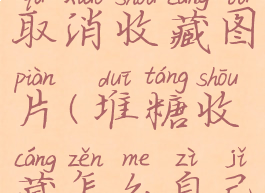 取消收藏图
piàn duī táng shōu
片(堆糖收
cáng zěn me zì jǐ
藏怎么自己